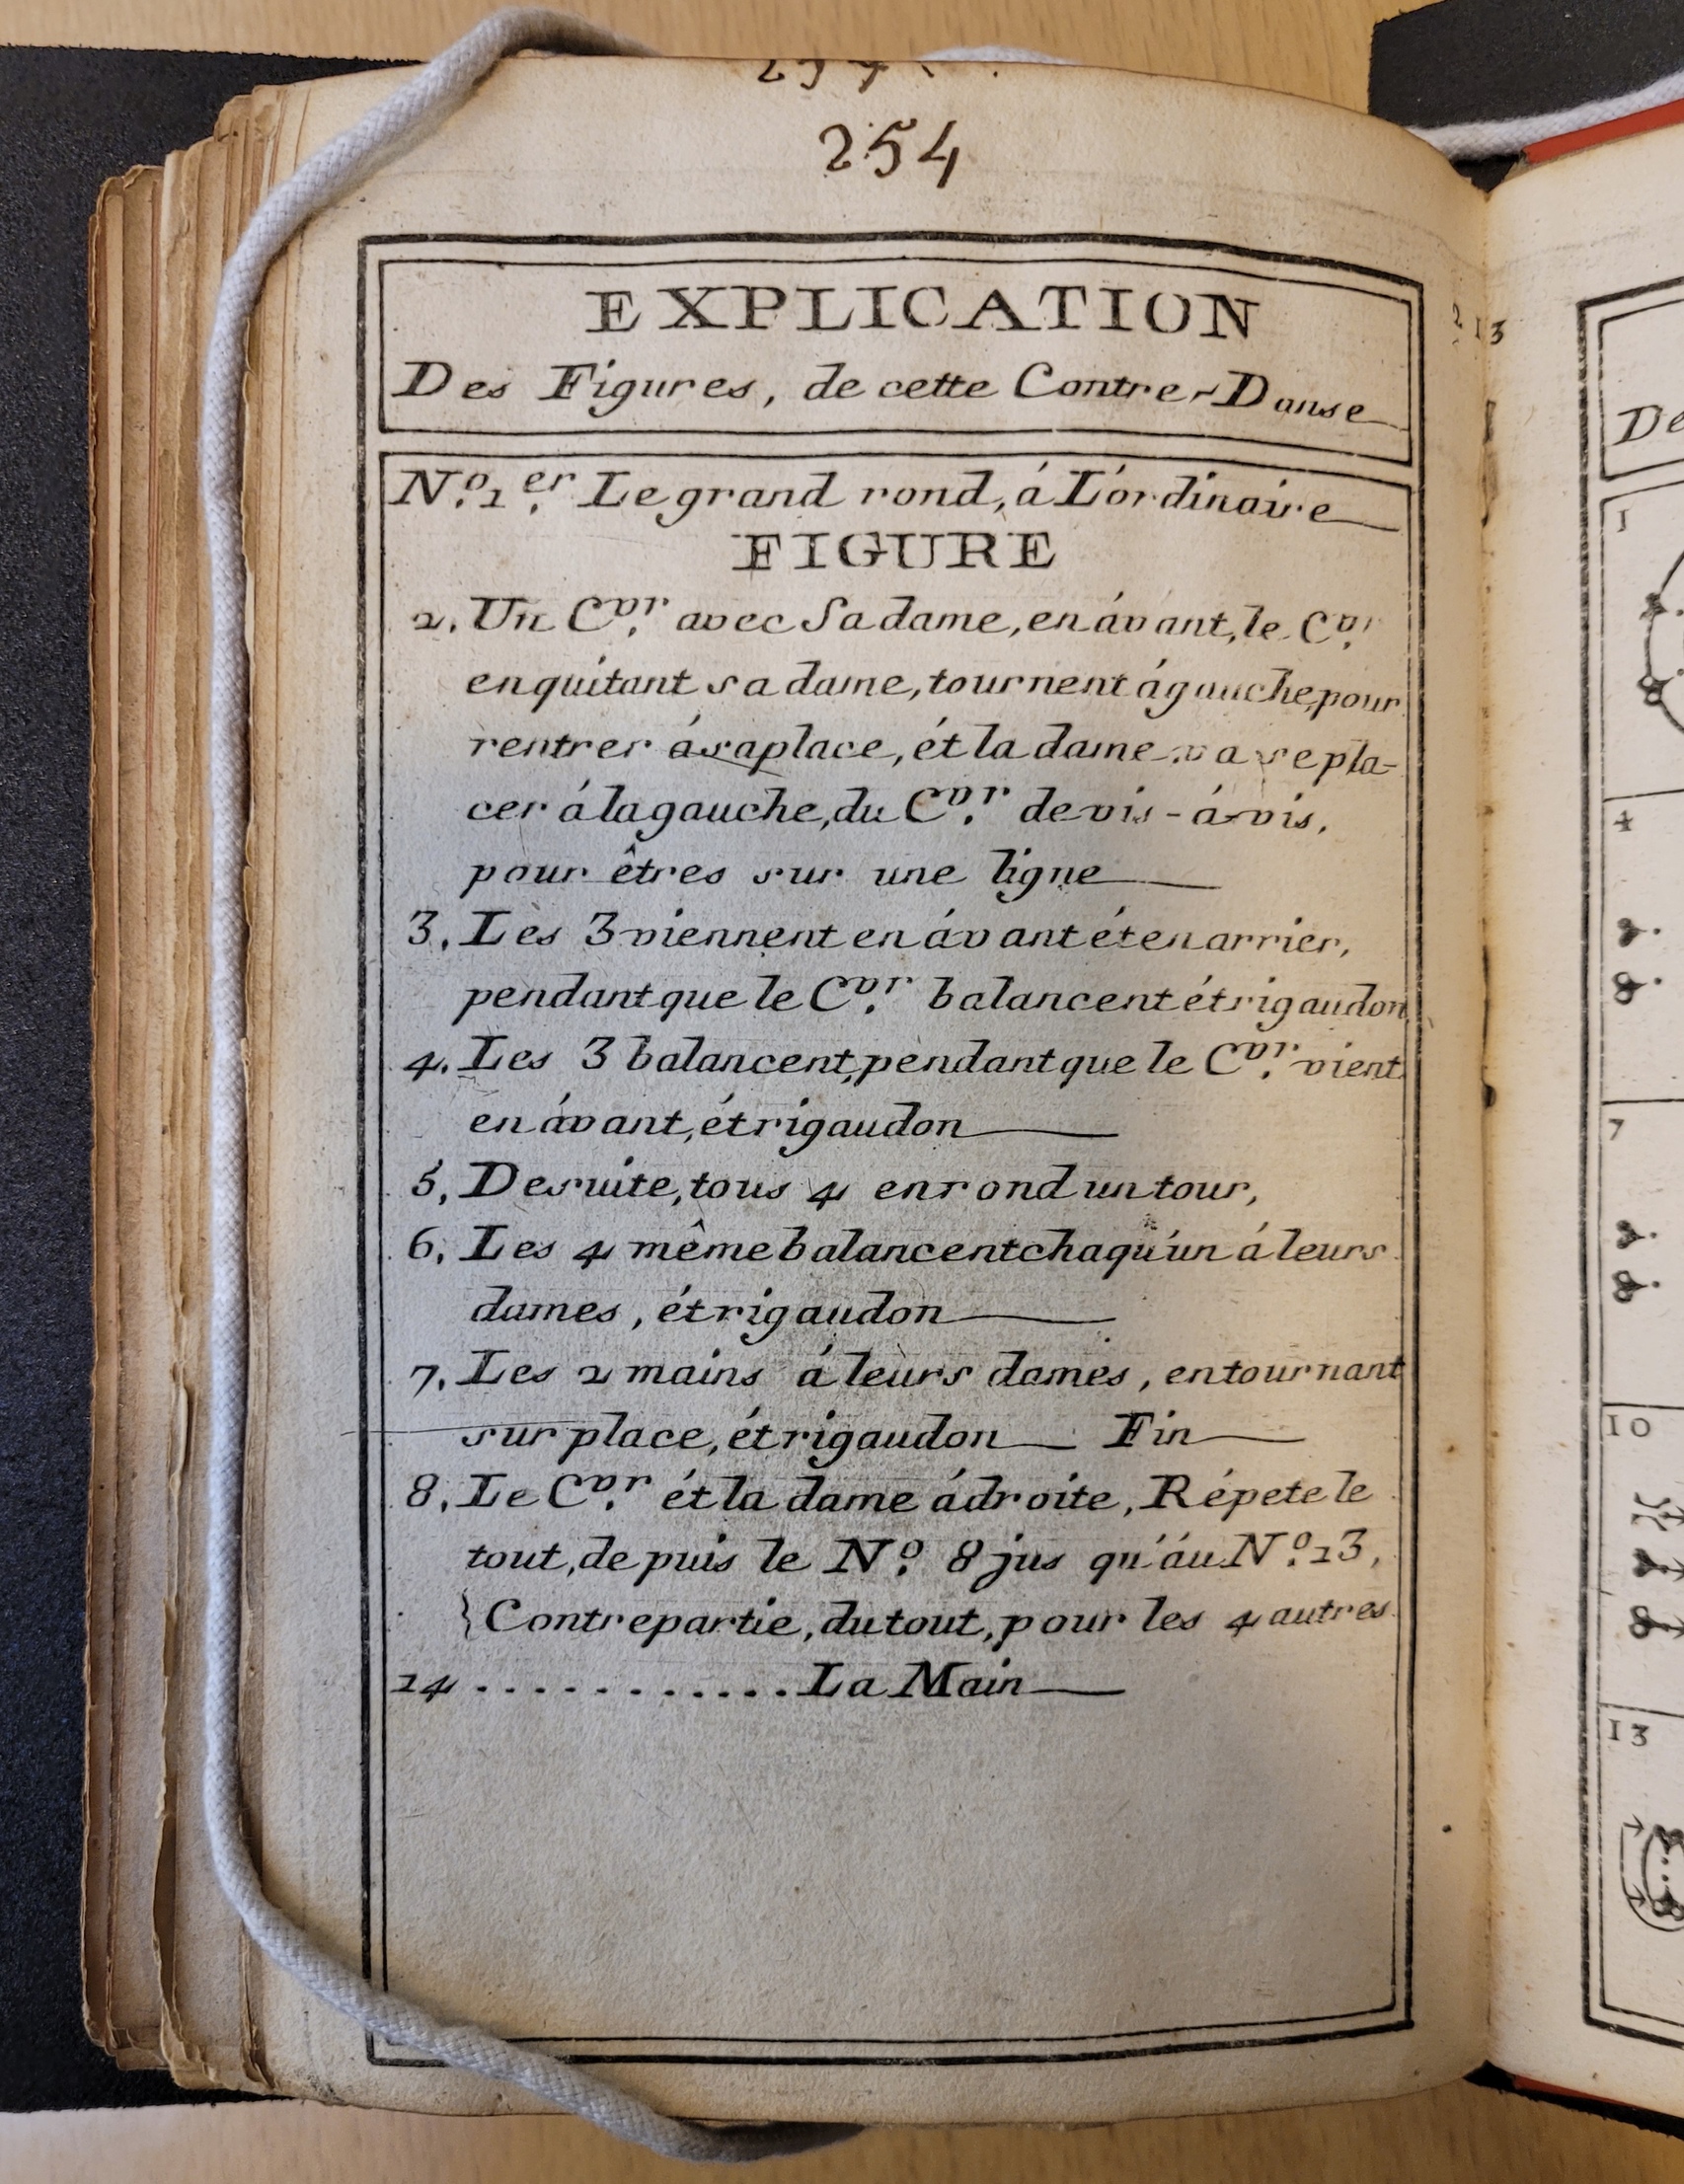 254
EXPLICATION
Des Figures, de cette Contre-Danse
N.º 1.er Le grand rond, á L'órdinaire
FIGURE
2. Un C.vr avec Sa dame, en ávant, le C.vr
en quitant sa dame, tournent á gauche, pour
rentrer á sa place, ét la dame va se pla-
cer á la gauche, du C.vr de vis-á-vis,
pour êtres sur une ligne
3. Les 3 viennent en ávant ét en arrier,
pendant que le C.vr balancent ét rigaudon
4. Les 3 balancent, pendant que le C.vr vient
en ávant, ét rigaudon
5, De suite, tous 4 en rond un tour,
6, Les 4 même balancent chaqu'ún á leurs
dames, ét rigaudon
7, Les 2 mains á leurs dames, en tournant
sur place, ét rigaudon Fin
8, Le C.vr ét la dame ádroite, Répete le
tout, de puis le N.º 8 jus qu'áu N.º 13,
}Contrepartie, du tout, pour les 4 autres
14 ............ La Main
213
De
1
4
7
10
13